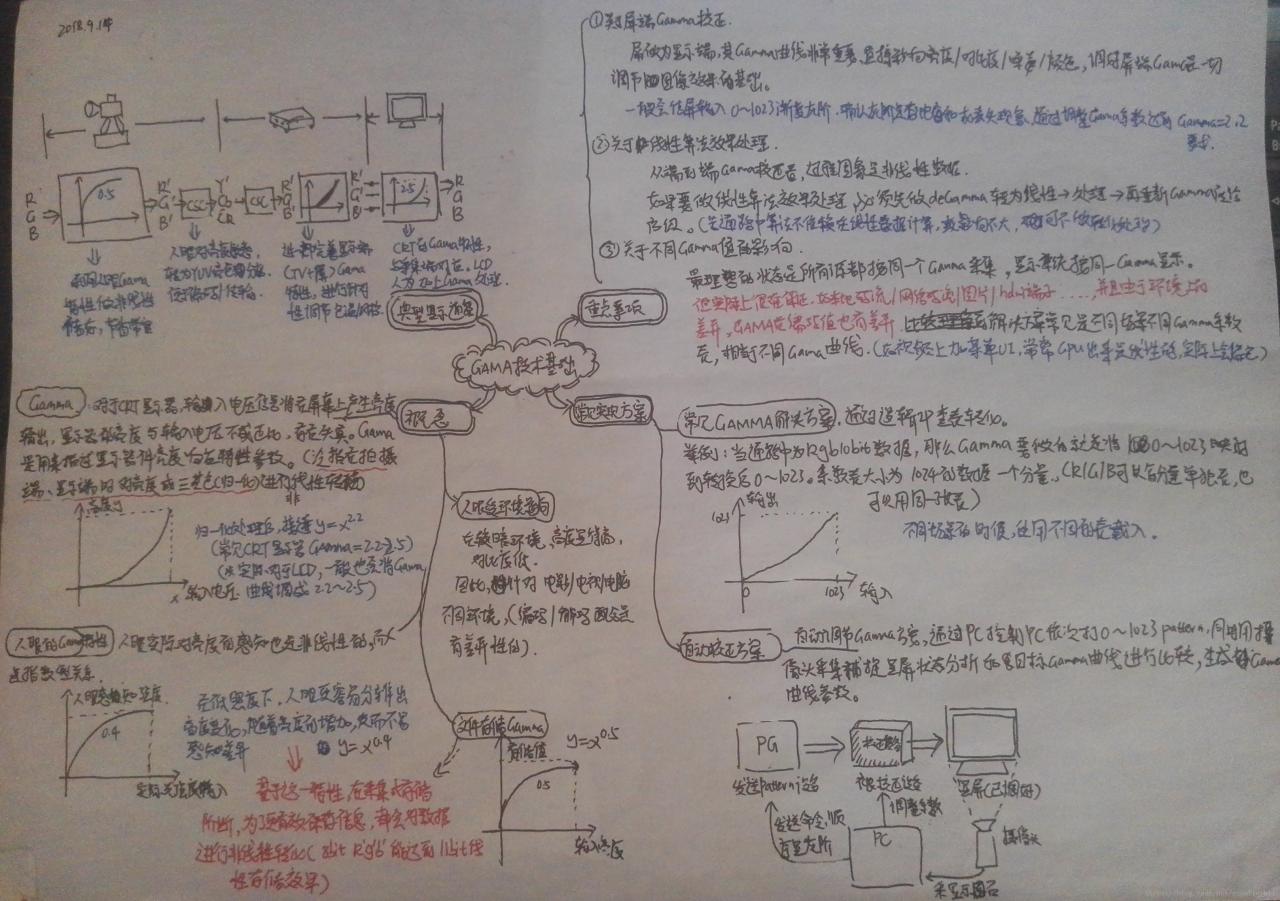 2018.9.14
R
G
B
0.5
R'
G'
B'
CSC
Y'
Cb
CR
CSC
R'
G'
B'
R'
G'
B'
2.5
R
G
B
利用人眼Gama
特性做非线性
存储, 节省带宽
人眼对亮度敏感,
转为YUV
编码/传输.
进一步完善显示端
(TV+屏) Gama
特性, 进行针对
性调节
CRT的Gama特性,
与采集端对应. LCD
人为加上Gama处理.
典型显示流程
重点事项
GAMA技术基础
概念
常见实现方案
①关于屏端Gamma校正.
屏做为显示端, 其Gamma曲线非常重要, 直接影响亮度/对比度/噪声/颜色, 调好屏端Gama是一切
调节图像效果的基础。
一般会给屏输入0~1023渐变灰阶, 确认灰阶, 通过调整Gama参数达到Gamma=2.2
要求.
②关于非线性算法效果处理.
从端到端Gama校正看, 过程图象是非线性数据.
如果要做线性算法效果处理, 必须先做deGamma转为线性→处理→再重新Gamma
③关于不同Gamma值的影响
最理想的状态是所有源都按同一个Gamma采集, 显示系统按同一Gamma显示.
但实际上很难保证, /网络码流/图片/hdmi端子……, 并且由于环境上的
差异, GAMA值也有差异. 解决方案常见是不同场景不同Gamma系数
表, 相当于不同Gama曲线. (在视频上加菜单UI, 常常GPU出来是线性的,
Gamma : 对于CRT显示器, 输入电压信号将在屏幕上产生亮度
输出, 显示器的亮度与输入电压不成正比, 存在失真。Gama
是用来描述显示器件亮度响应特性参数。(泛指在拍摄
端、显示端对亮度或三基色(归一化)进行非线性转换)
亮度y
x
输入电压
归一化处理后, 接近y=x^2.2
(常见CRT显示器Gamma=2.2~2.5)
(实际对于LCD, 一般也会将Gamma
曲线调成2.2~2.5)
人眼受环境影响
在较暗环境, 亮度
对比度低.
因此, 针对电影/电视/电脑
不同环境, (编码/解码
有差异性的).
人眼的Gama特性
人眼实际对亮度的感知也是非线性的, 而
是指数型关系.
人眼感知亮度
0.4
实际光强度输入
在低照度下, 人眼更容易分辨出
亮度变化, 随着亮度的增加, 反而不易
感知差异
y=x^0.4
基于这一特性, 在采集或存储
阶断, 为了更有效保存信息, 都会对数据
进行非线性转换( 8bit R'g'b' 能达到11bit线
性存储效果)
文件存储Gamma
存储值
y=x^0.5
0.5
输入亮度
常见GAMMA解决方案
, 通过逻辑IP查表转化。
举例: 当通路中为Rgb10bit数据, 那么Gamma要做的就是将0~1023映射
到转换后0~1023。系数表大小为1024的数据一个分量, (R/G/B可以各分量单独表, 也
可以用同一张表)
输出
1023
0
1023
输入
不同场景的时候, 使用不同的表载入.
自动校正方案
自动调节Gamma方案, 通过PC控制PC依次打0~1023 pattern, 同时用摄
像头采集捕捉显屏状态分析和目标Gamma曲线进行比较, 生成Game
曲线参数。
PG
发送Pattern设备
校正设备
调整参数
显屏(已调好)
发送命令, 顺
序显灰阶
PC
摄像头
采显示图片